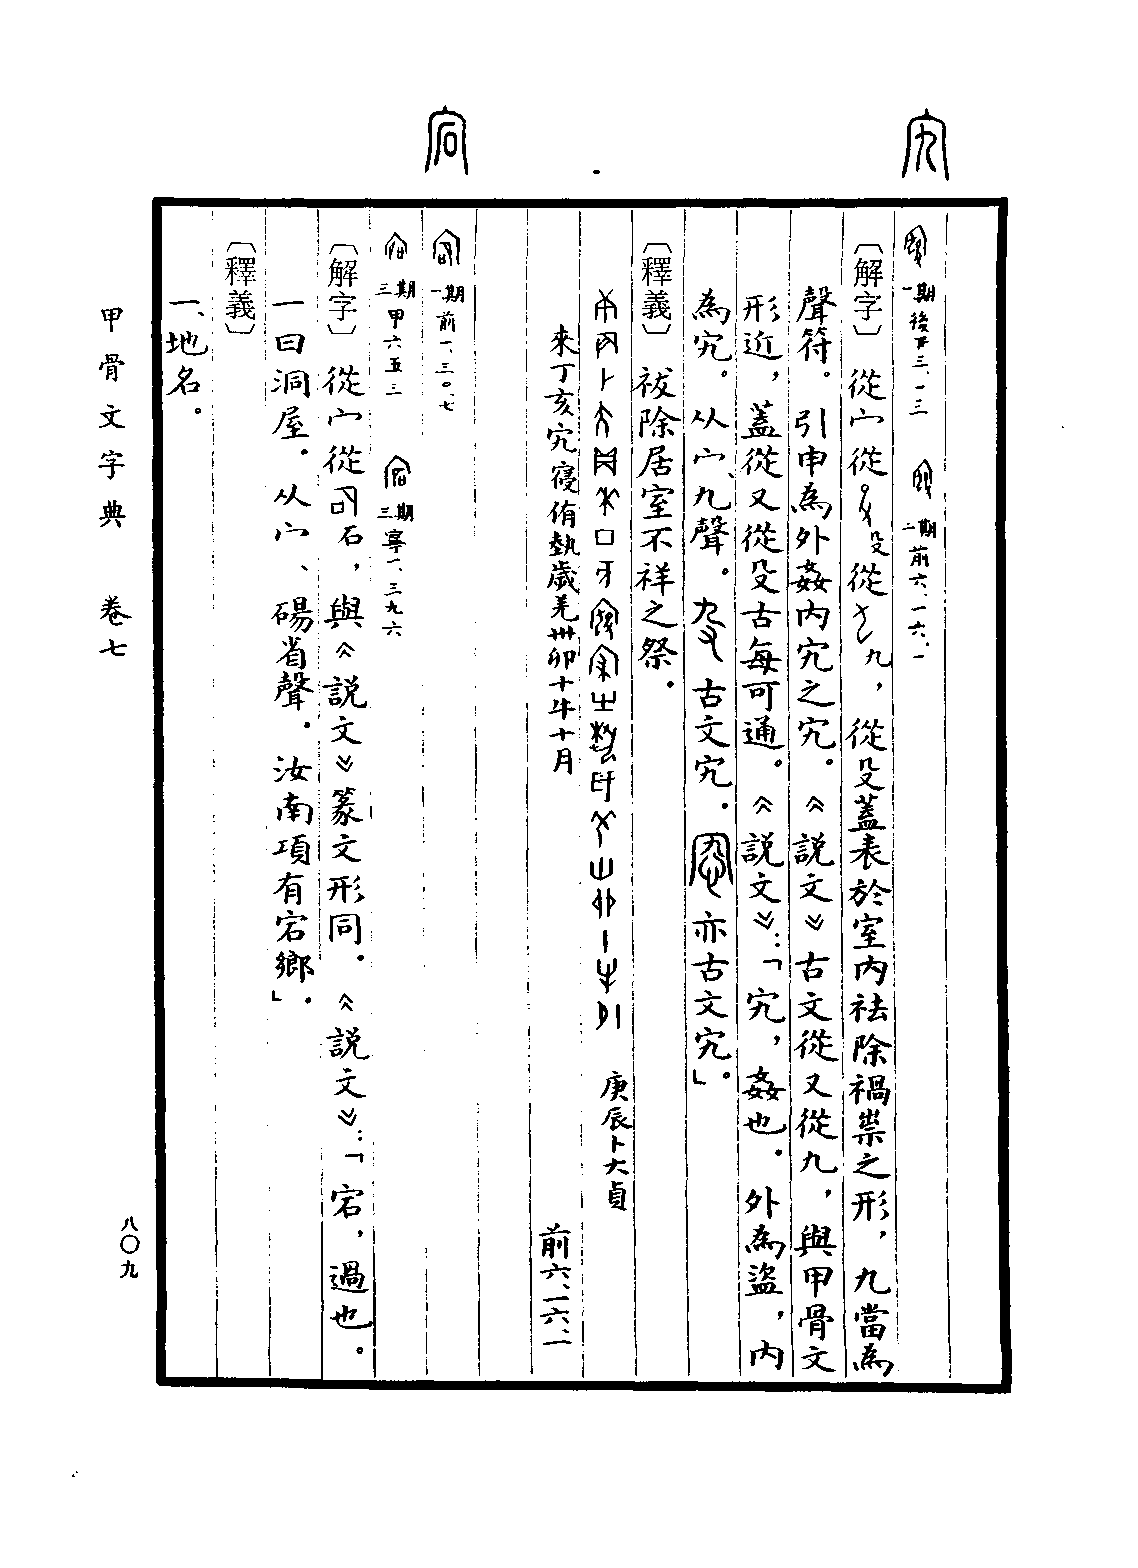 宄
一期後下三·一三
二期前六·一六·一
〔解字〕從宀從殳從九，從殳蓋表於室內祛除禍祟之形，九當為
聲符。引申為外姦內宄之宄。《説文》古文從又從九，與甲骨文
形近，蓋從又從殳古每可通。《説文》：「宄，姦也。外為盜，內
為宄。从宀、九聲。古文宄。亦古文宄」。
〔釋義〕祓除居室不祥之祭。
庚辰卜大貞
來丁亥宄寑侑埶歲羌卅卯十牛十月
前六·一六·一
宕
一期前一·三〇·七
三期甲六五三
三期寧一·三九六
〔解字〕從宀從石，與《説文》篆文形同。《説文》：「宕，過也。
一曰洞屋。从宀、碭省聲。汝南項有宕鄉」。
〔釋義〕
一、地名。
甲骨文字典 卷七
八〇九